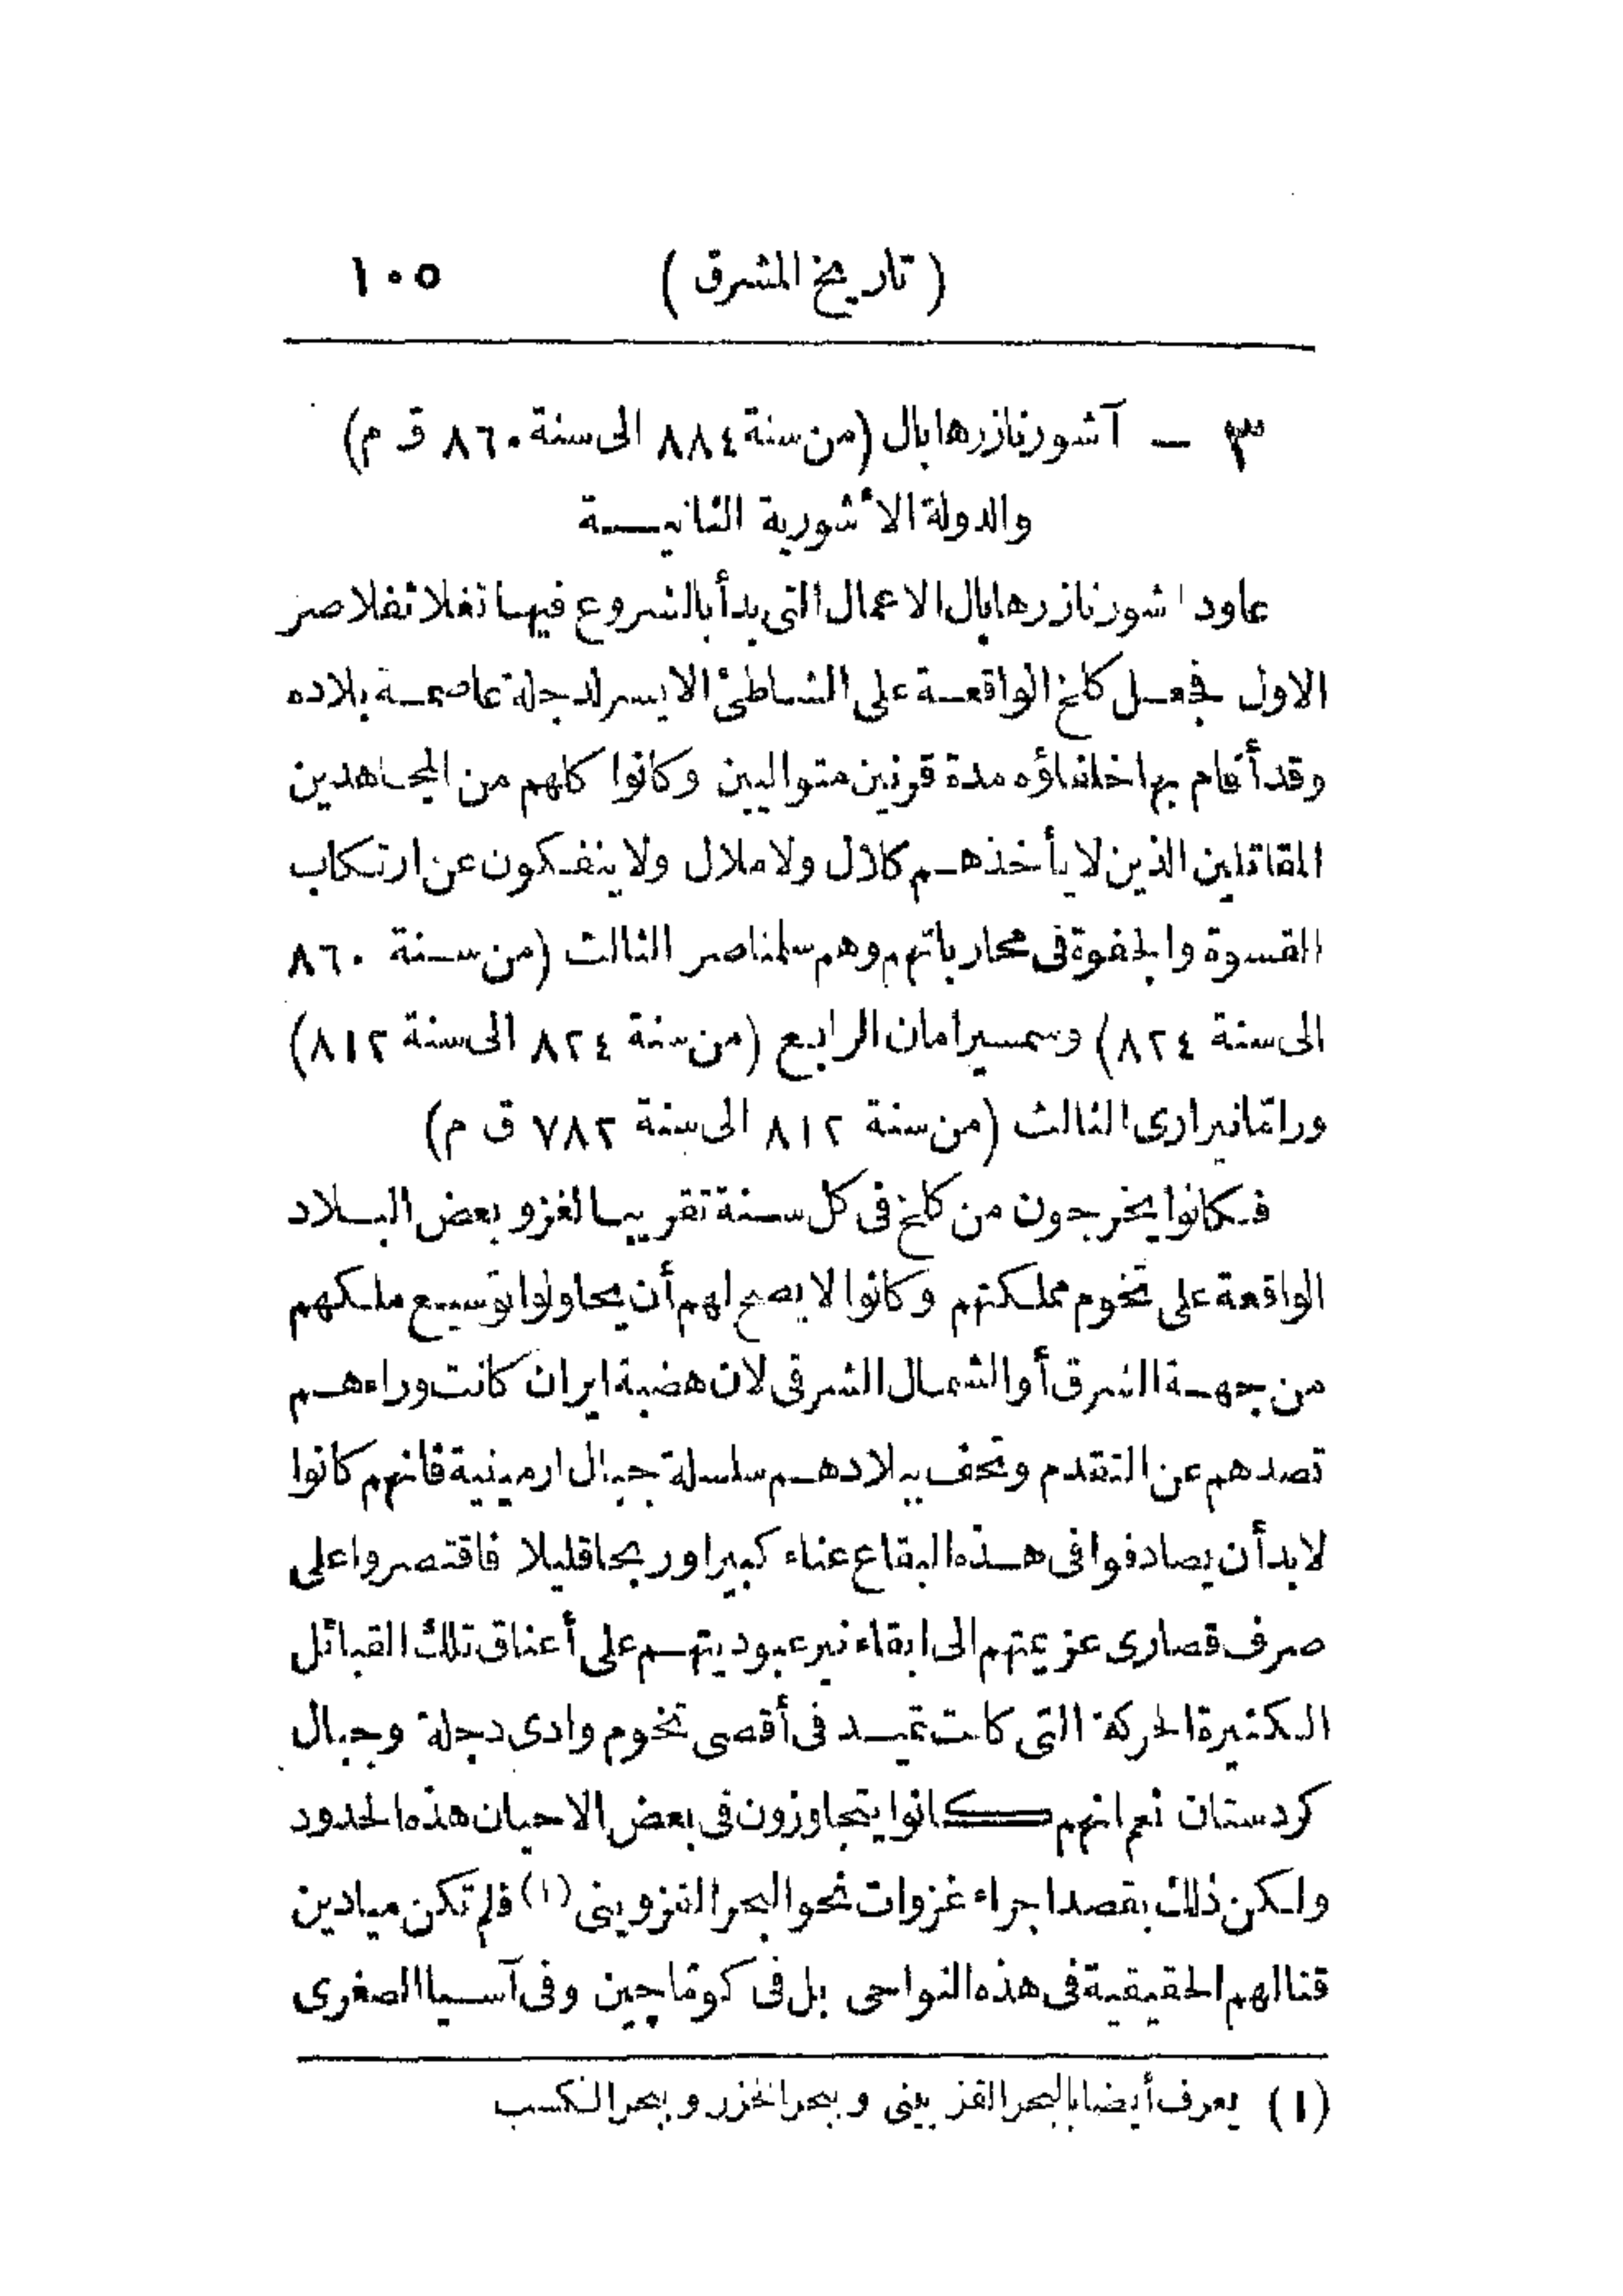 ( تاريخ المشرق ) ١٠٥
٣ — آشورنازرهابال (من سنة ٨٨٤ الى سنة ٨٦٠ ق م)
والدولة الأشورية الثانيــة
عاود اشورنازرهابال الاعمال التى بدأ بالشروع فيها تغلاثفلاصر
الاول فجعل كلخ الواقعة على الشاطئ الايسر لدجلة عاصمة بلاده
وقد أقام بها خلفاؤه مدة قرنين متواليين وكانوا كلهم من المجاهدين
المقاتلين الذين لا يأخذهم كلال ولا ملال ولا ينفكون عن ارتكاب
القسوة والجفوة فى محارباتهم وهم سلمناصر الثالث (من سنة ٨٦٠
الى سنة ٨٢٤) وسمسيرامان الرابع (من سنة ٨٢٤ الى سنة ٨١٢)
ورامّانيرارى الثالث (من سنة ٨١٢ الى سنة ٧٨٣ ق م)
فكانوا يخرجون من كلخ فى كل سنة تقريبا لغزو بعض البلاد
الواقعة على تخوم مملكتهم وكانوا لا يصح لهم أن يحاولوا توسيع ملكهم
من جهة الشرق أو الشمال الشرقى لان هضبة ايران كانت وراءهم
تصدهم عن التقدم وتحف ببلادهم سلسلة جبال ارمينية فانهم كانوا
لابد أن يصادفوا فى هذه البقاع عناء كبيرا وربحا قليلا فاقتصروا على
صرف قصارى عزيمتهم الى ابقاء نير عبوديتهم على أعناق تلك القبائل
الكثيرة الحركة التى كانت تميد فى أقصى تخوم وادى دجلة وجبال
كردستان نعم انهم كانوا يتجاوزون فى بعض الاحيان هذه الحدود
ولكن ذلك بقصد اجراء غزوات نحو البحر القزوينى (١) فلم تكن ميادين
قتالهم الحقيقية فى هذه النواحى بل فى كوماچين وفى آسيا الصغرى
(١) يعرف أيضا بالبحر القزبينى وببحر الخزر وببحر الكسب